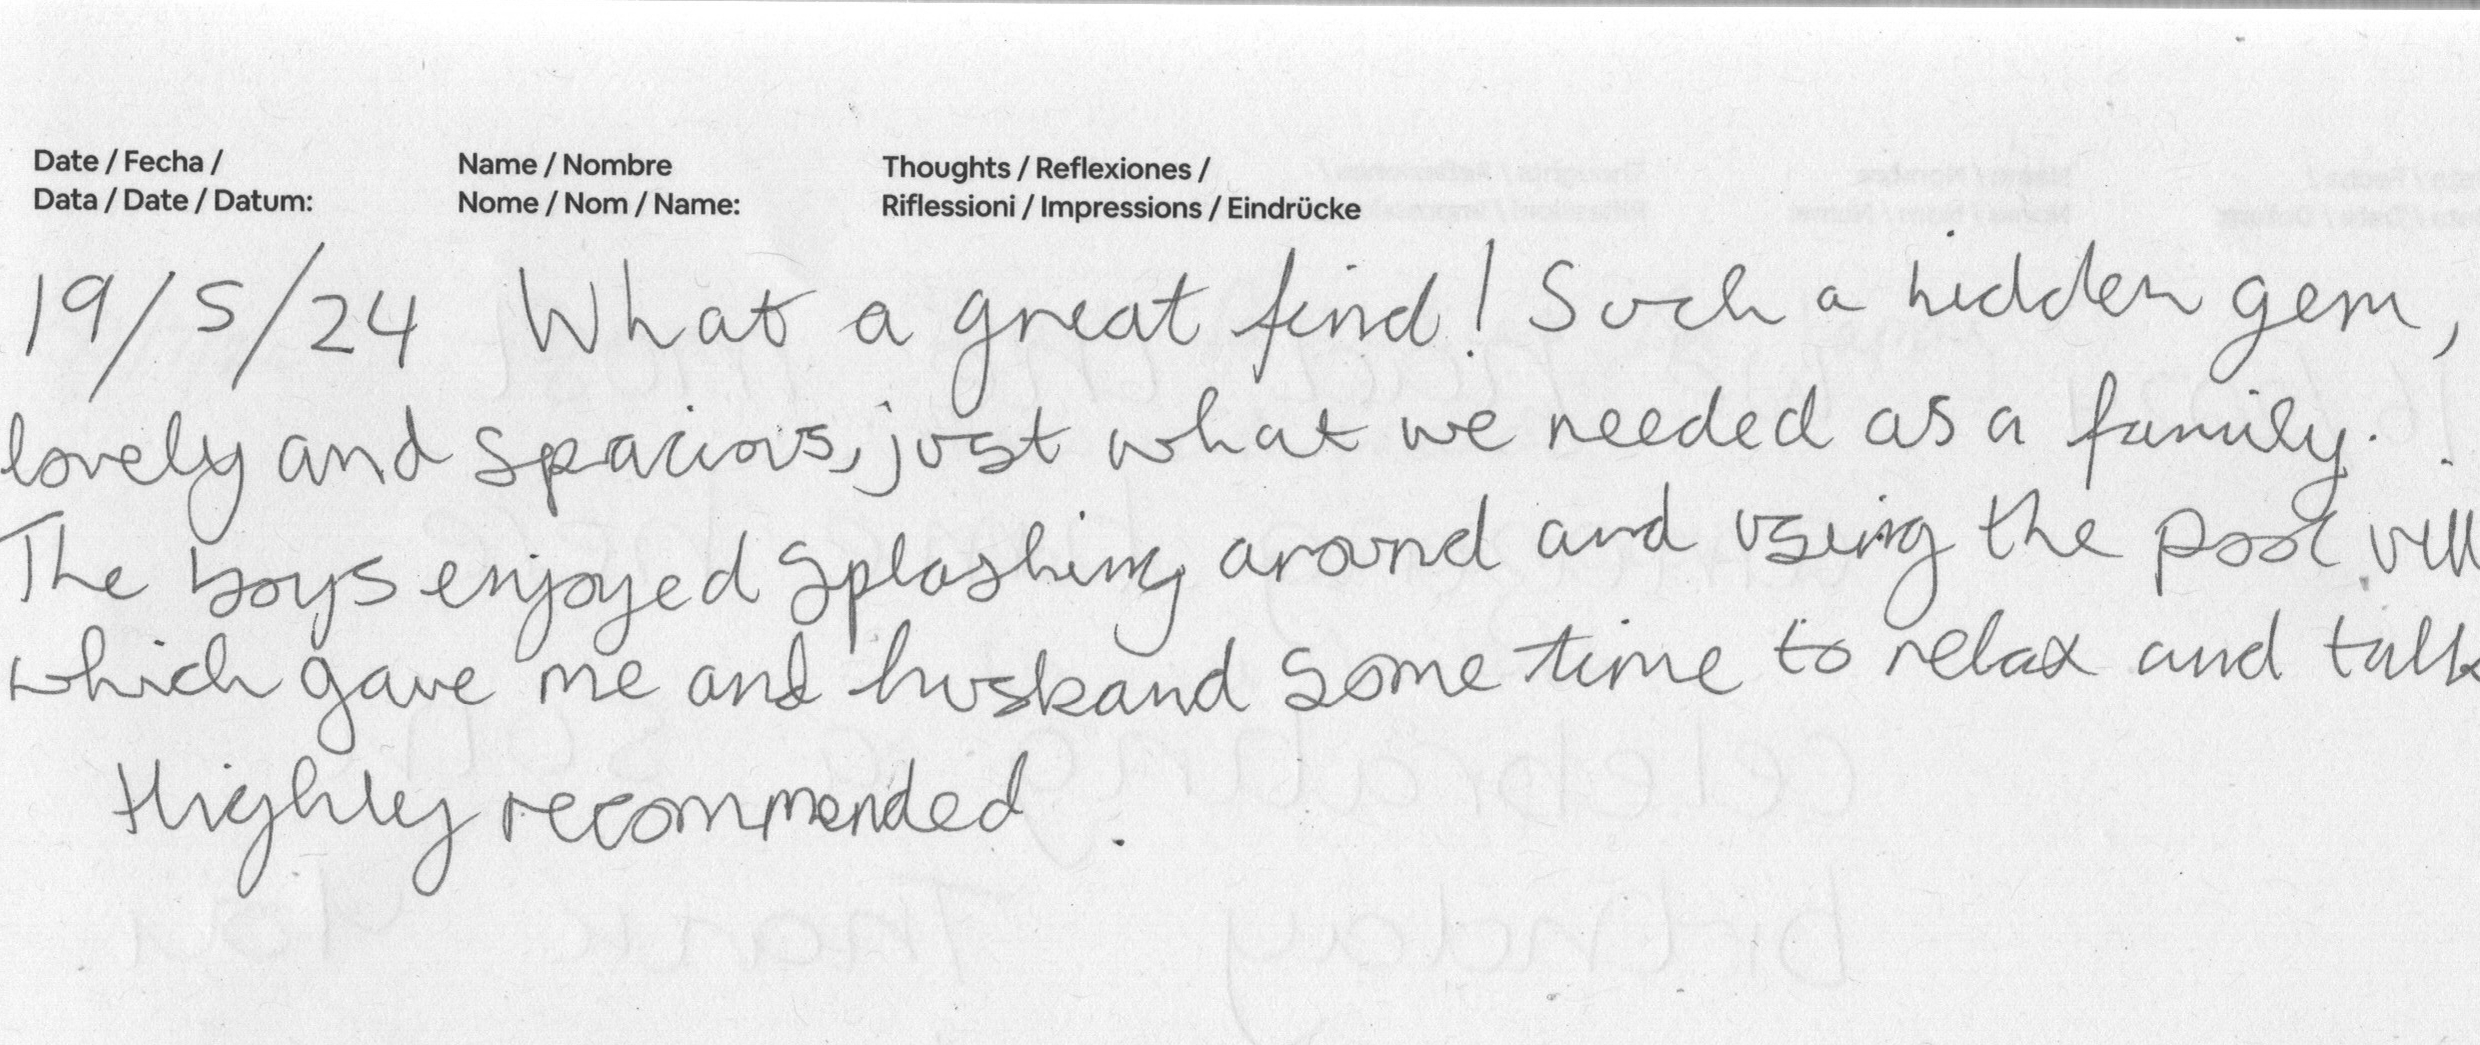 Date / Fecha / Name / Nombre Thoughts / Reflexiones /
Data / Date / Datum: Nome / Nom / Name: Riflessioni / Impressions / Eindrücke
19/5/24 What a great find! Such a hidden gem,
lovely and spacious, just what we needed as a family.
The boys enjoyed splashing around and using the pool
which gave me and husband some time to relax and talk
Highly recommended.